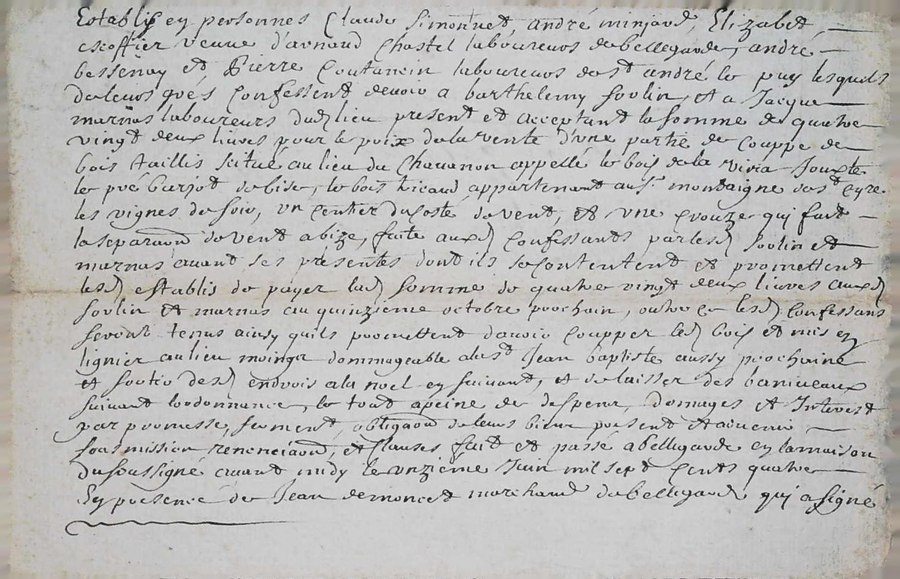 Establis en personnes Claude Simonnet, andré minjard, Elizabet
escoffier veuve d'arnaud Chastel laboureurs de bellegarde, andre
bessenay et Pierre Coutancin laboureurs de st andré le puy lesquels
de leurs grés Confessent devoir a barthelemy soulin, et a Jacque
marnas laboureurs dud lieu present et acceptant la somme de quatre
vingt deux livres pour le prix de la vente d'une partie de Couppe de
bois taillis scitue au lieu du Chavanon appellé le bois de la vivia Jouxte
le pré burjot de bise, le bois ricaud appartenant au sr montaigne de st Cyre
les vignes de soir, un sentier du Costé de vent, et une Crouze qui fait
la separaon de vent a bize, faite auxd Confessants par lesd soulin et
marnas avant ses presentes dont ils se Contentent et promettent
lesd establis de payer lad somme de quatre vingt deux livres auxd
soulin et marnas au quinzieme octobre prochain, outre ce lesd Confessans
seront tenus ainsy quils promettent d'avoir Coupper led bois et mis en
lignier au lieu moingr dommageable a la st Jean baptiste aussy prochaine
et sortir desd endrois a la noel en suivant, et de laisser des baniveaux
suivant lordonnance, le tout a peine de despens, domages et Interest
par promesse, serment, obligaon de leurs biens present et avenir
sousmission renonciaon, et Clauses fait et passé a bellegarde en la maison
du soussigné avant midy le unzieme Juin mil sept Cents quatre
En presence de Jean demoncet marchand de bellegarde qui a signé